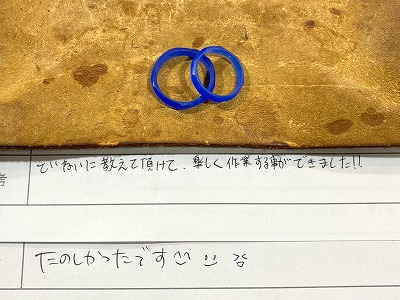 ていねいに教えて頂けて、楽しく作業する事ができました!!
考
たのしかったです